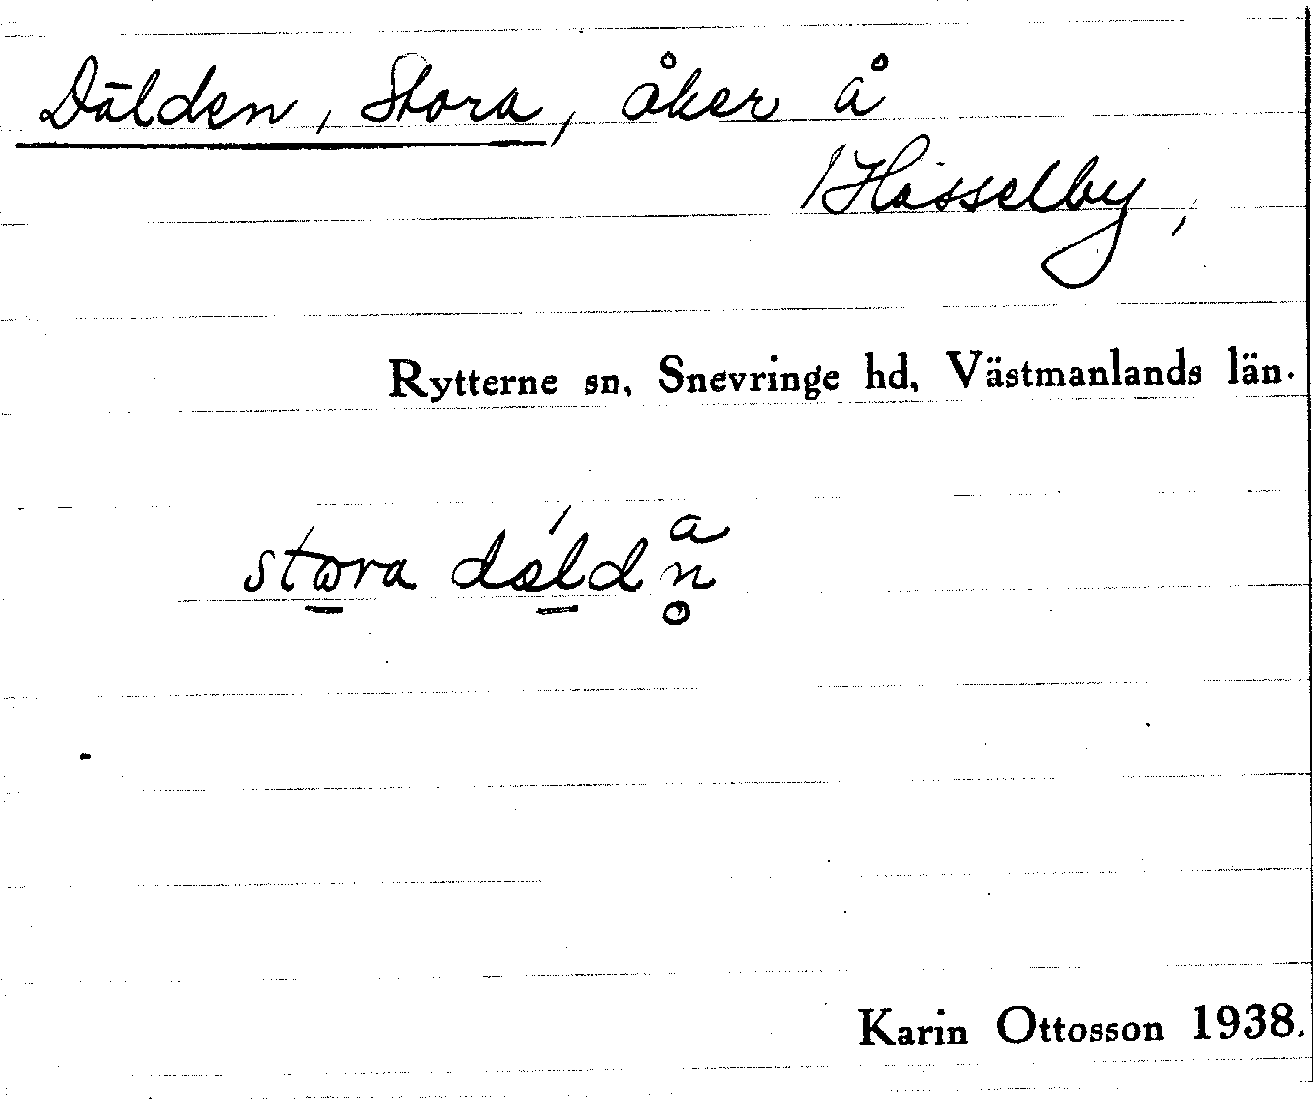 Dälden, Stora, åker å
Hässelby,
Rytterne sn, Snevringe hd, Västmanlands län.
stora
Karin Ottosson 1938.